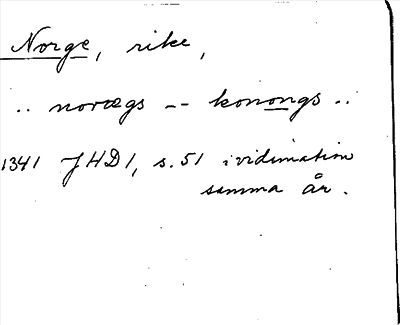 Norge, rike,
.. noregs -- konongs ..
1341 JHD1, s. 51 i vidimation
samma år.